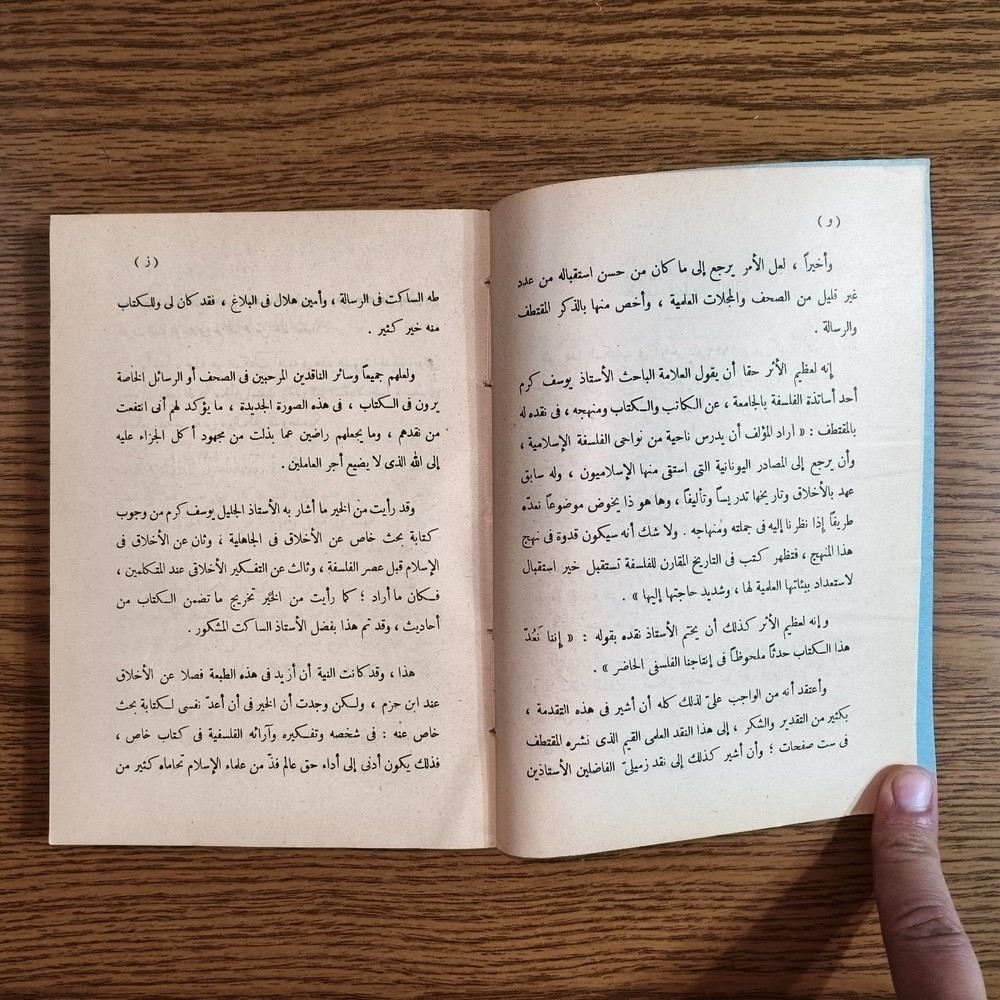 ( و )
وأخيراً ، لعل الأمر يرجع إلى ما كان من حسن استقباله من عدد
غير قليل من الصحف والمجلات العلمية ، وأخص منها بالذكر المقتطف
والرسالة .
إنه لعظيم الأثر حقا أن يقول العلامة الباحث الأستاذ يوسف كرم
أحد أساتذة الفلسفة بالجامعة ، عن الكاتب والكتاب ومنهجه ، فى نقده له
بالمقتطف : « أراد المؤلف أن يدرس ناحية من نواحى الفلسفة الإسلامية ،
وأن يرجع إلى المصادر اليونانية التى استقى منها الإسلاميون ، وله سابق
عهد بالأخلاق وتاريخها تدريساً وتأليفاً ، وها هو ذا يخوض موضوعاً نعدّه
طريفاً إذا نظرنا إليه فى جملته ومنهاجه . ولا شك أنه سيكون قدوة فى نهج
هذا المنهج ، فتظهر كتب فى التاريخ المقارن للفلسفة تستقبل خير استقبال
لاستعداد بيئاتها العلمية لها ، وشديد حاجتها إليها » .
وإنه لعظيم الأثر كذلك أن يختم الأستاذ نقده بقوله : « إننا نَعُدّ
هذا الكتاب حدثاً ملحوظاً فى إنتاجنا الفلسفى الحاضر » .
وأعتقد أنه من الواجب علىّ لذلك كله أن أشير فى هذه التقدمة ،
بكثير من التقدير والشكر ، إلى هذا النقد العلمى القيم الذى نشره المقتطف
فى ست صفحات ؛ وأن أشير كذلك إلى نقد زميلىّ الفاضلين الأستاذين
( ز )
طه الساكت فى الرسالة ، وأمين هلال فى البلاغ ، فقد كان لى وللكتاب
منه خير كثير .
ولعلهم جميعاً وسائر الناقدين المرحبين فى الصحف أو الرسائل الخاصة
يرون فى الكتاب ، فى هذه الصورة الجديدة ، ما يؤكد لهم أنى انتفعت
من نقدهم ، وما يجعلهم راضين عما بذلت من مجهود أكل الجزاء عليه
إلى الله الذى لا يضيع أجر العاملين .
وقد رأيت من الخير ما أشار به الأستاذ الجليل يوسف كرم من وجوب
كتابة بحث خاص عن الأخلاق فى الجاهلية ، وثان عن الأخلاق فى
الإسلام قبل عصر الفلسفة ، وثالث عن التفكير الأخلاقى عند المتكلمين ،
فكان ما أراد ؛ كما رأيت من الخير تخريج ما تضمن الكتاب من
أحاديث ، وقد تم هذا بفضل الأستاذ الساكت المشكور .
هذا ، وقد كانت النية أن أزيد فى هذه الطبعة فصلا عن الأخلاق
عند ابن حزم ، ولكن وجدت أن الخير فى أن أعدّ نفسى لكتابة بحث
خاص عنه : فى شخصه وتفكيره وآرائه الفلسفية فى كتاب خاص ،
فذلك يكون أدنى إلى أداء حق عالم فذّ من علماء الإسلام تحاماه كثير من